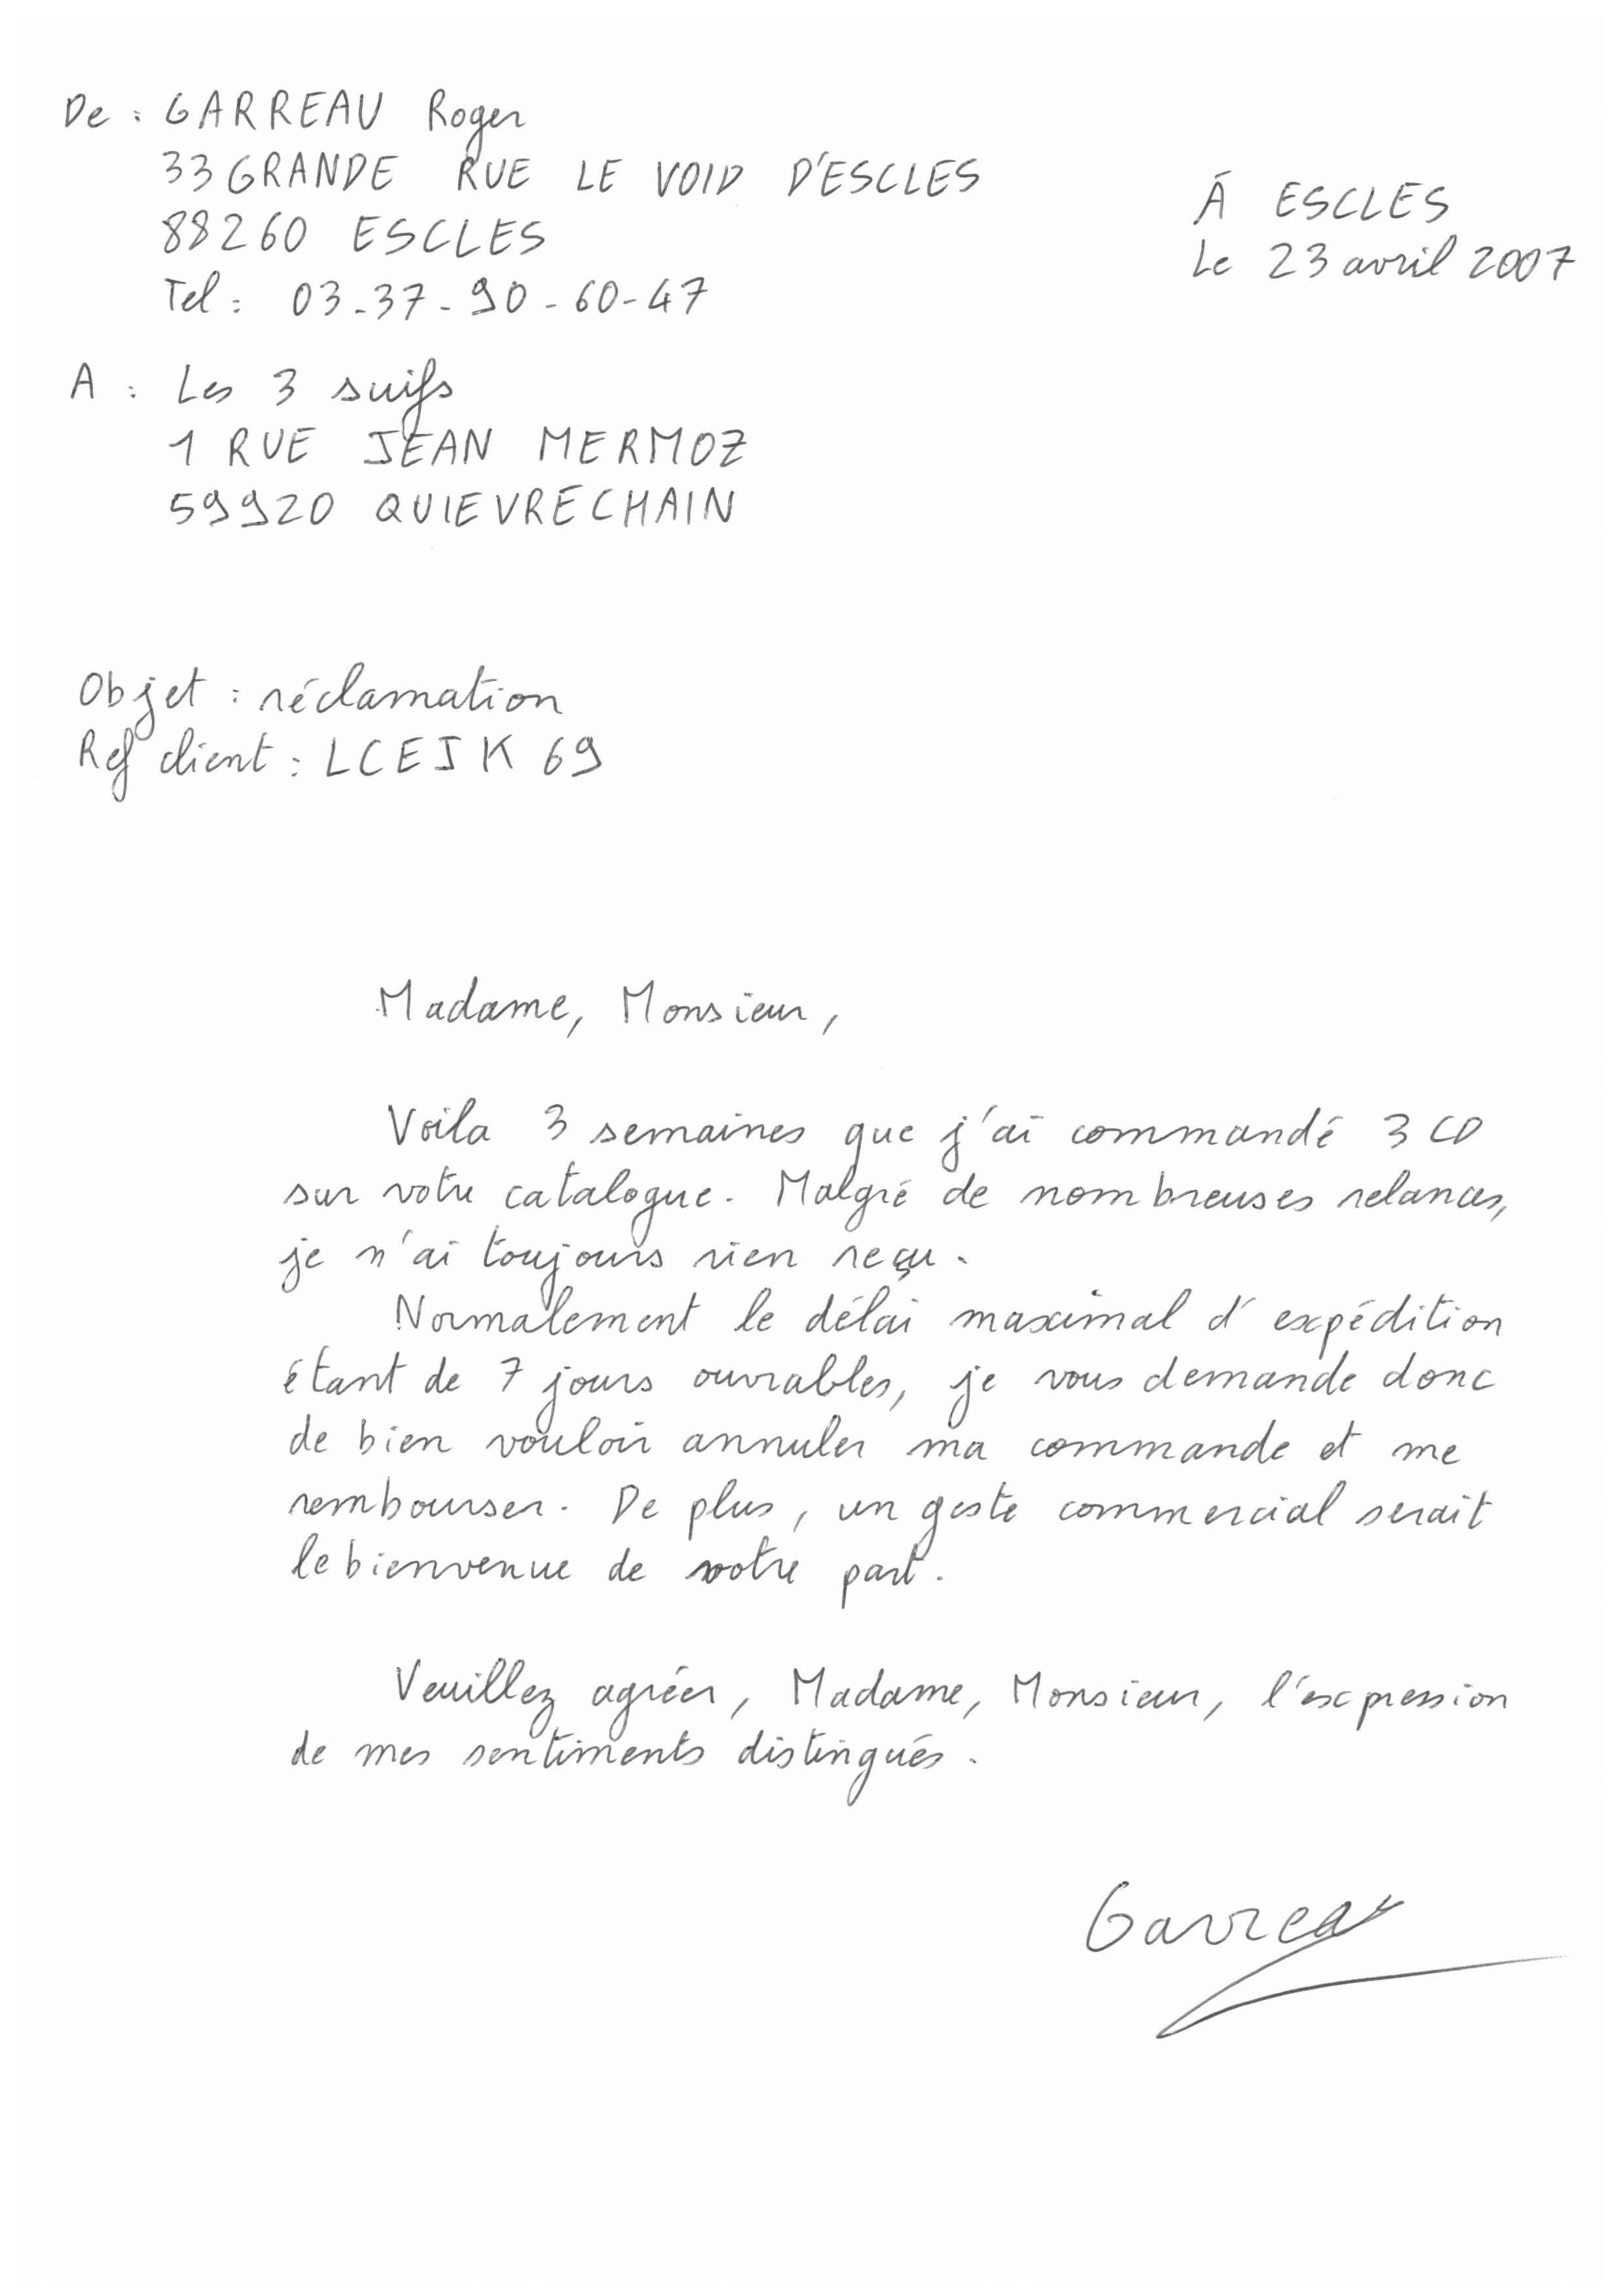 De : GARREAU Roger
33 GRANDE RUE LE VOID D'ESCLES
88260 ESCLES
Tel : 03-37-90-60-47
Á ESCLES
Le 23 avril 2007
A : Les 3 suifs
1 RUE JEAN MERMOZ
59920 QUIEVRECHAIN
Objet : réclamation
Ref client : LCEJK 69
Madame, Monsieur,
Voila 3 semaines que j'ai commandé 3 CD
sur votre catalogue. Malgré de nombreuses relances,
je n'ai toujours rien reçu.
Normalement le délai maximal d'expédition
étant de 7 jours ouvrables, je vous demande donc
de bien vouloir annuler ma commande et me
rembourser. De plus, un geste commercial serait
le bienvenue de votre part.
Veuillez agréer, Madame, Monsieur, l'expression
de mes sentiments distingués.
Garreau